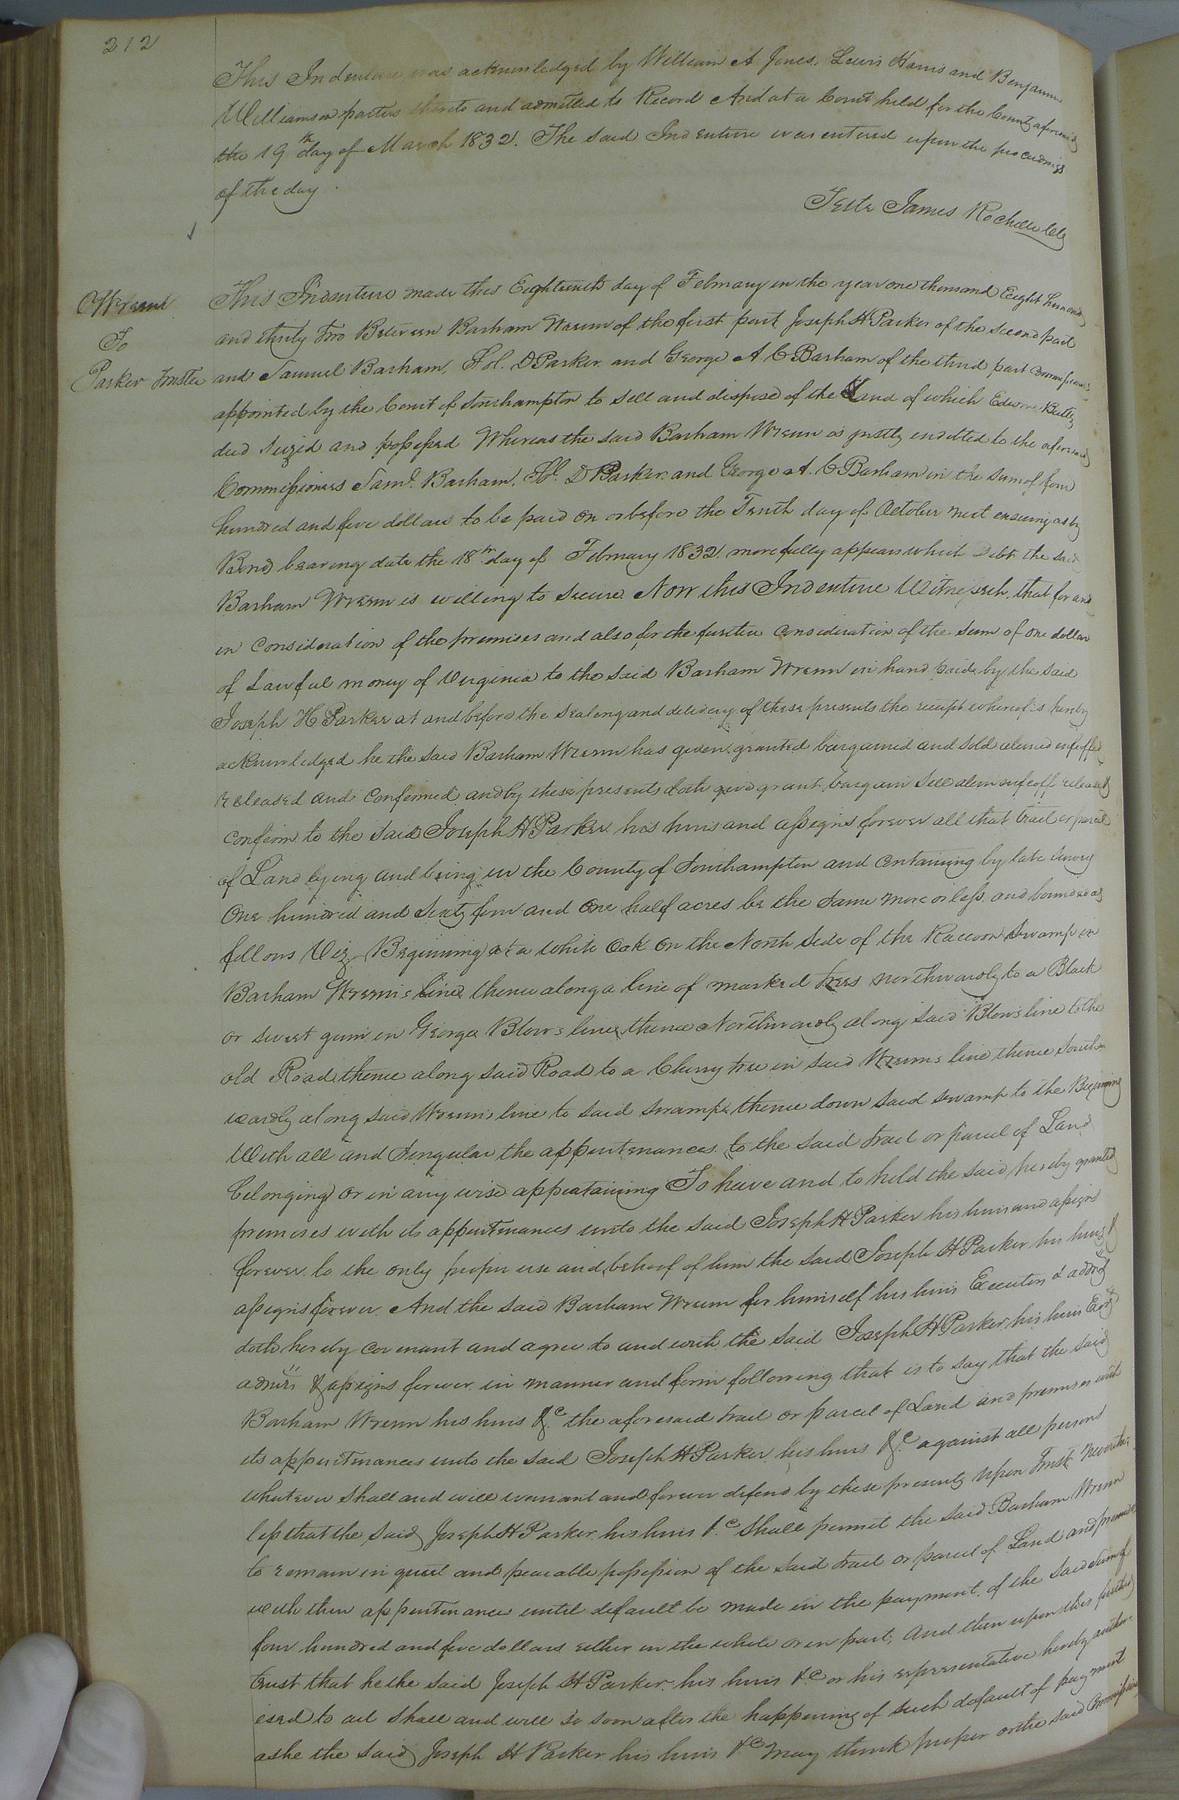 212
This Indenture was acknowledged by William A Jones, Lewis Harris and Benjamin
Williamson parties thereto and admitted to Record And at a Court held for the County aforesaid
the 19th day of March 1832. The said Indenture was entered upon the proceedings
of the day.
Teste James Rochelle Clk
Wrenn
To
Parker Trustee
This Indenture made this Eighteenth day of February in the year one thousand Eight hundred
and thirty two Between Barham Wrenn of the first part Joseph H Parker of the second part
and Samuel Barham, Sol. D Parker and George A C Barham of the third part Commissioners
appointed by the Court of Southampton to sell and dispose of the Land of which Edwin Butts
died seized and possessed Whereas the said Barham Wrenn is justly indebted to the aforesaid
Commissioners Saml. Barham, Sol. D Parker and George A. C Barham in the sum of four
hundred and five dollars to be paid on or before the Tenth day of October next ensuing as by
Bond bearing date the 18th day of February 1832 more fully appears which Debt the said
Barham Wrenn is willing to secure Now this Indenture Witnesseth, that for and
in consideration of the premises and also for the further consideration of the sum of one dollar
of Lawful money of Virginia to the said Barham Wrenn in hand paid by the said
Joseph H Parker at and before the sealing and delivery of these presents the receipt whereof is hereby
acknowledged he the said Barham Wrenn has given, granted bargained and sold aliened enfeoffed
released and confirmed and by these presents doth give grant, bargain sell alien enfeoff release &
confirm to the said Joseph H Parker his heirs and assigns forever all that tract or parcel
of Land lying and being in the County of Southampton and containing by late survey
One hundred and Sixty four and one half acres be the same more or less and bounded as
follows Viz, Beginning at a white Oak on the North side of the Raccoon Swamp in
Barham Wrenn's line, thence along a line of marked trees northwardly to a Black
or sweet gum in George Blows line, thence Northwardly along said Blow's line to the
old Road, thence along said Road to a Cherry tree in said Wrenns line, thence south
wardly along said Wrenns line to said swamp, thence down said swamp to the Beginning
With all and Singular the appurtenances to the said tract or parcel of Land
belonging or in any wise appertaining To have and to hold the said hereby granted
premises with its appurtenances unto the said Joseph H Parker his heirs and assigns
forever to the only proper use and behoof of him the said Joseph H Parker his heirs &
assigns forever And the said Barham Wrenn for himself his heirs Executors & admrs
doth hereby covenant and agree to and with the said Joseph H Parker, his heirs Exors
admrs & assigns forever in manner and form following that is to say that the said
Barham Wrenn his heirs &c the aforesaid tract or parcel of Land and premises with
its appurtenances unto the said Joseph H Parker his heirs &c against all persons
whatever shall and will warrant and forever defend by these presents Upon Trust Neverthe
less that the said Joseph H Parker his heirs &c shall permit the said Barham Wrenn
to remain in quiet and peaceable possession of the said tract or parcel of Land and premises
with their appurtenance until default be made in the payment of the said sum of
four hundred and five dollars either in the whole or in part, And then upon this further
trust that he the said Joseph H Parker his heirs &c or his representative hereby author
ised to act shall and will so soon after the happening of such default of payment
as he the said Joseph H Parker his heirs &c may think proper or the said Commissioners